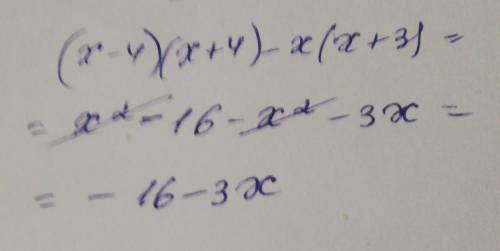 (x-4)(x+4)-x(x+3)=
= x²-16-x²-3x=
= -16-3x